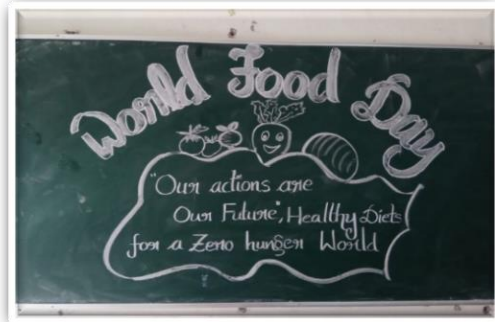 World Food Day
"Our actions are
Our Future", Healthy Diets
for a Zero hunger World